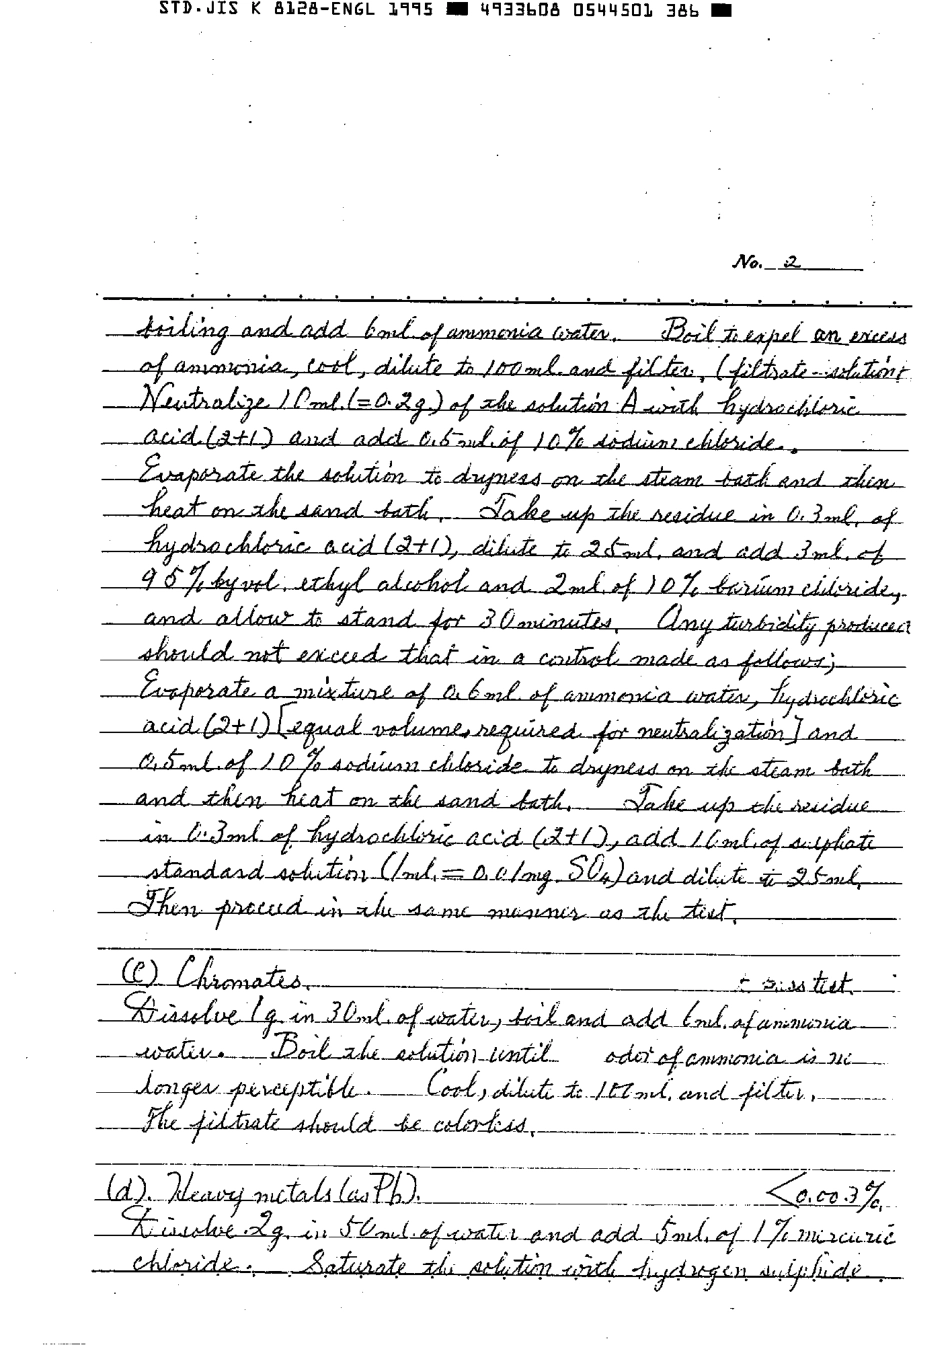 STD.JIS K 8128-ENGL 1995 ■ 4933608 0544501 386 ■
No. 2
boiling and add 6ml. of ammonia water. Boil to expel an excess
of ammonia, cool, dilute to 100ml. and filter. (filtrate--solution
Neutralize 10ml. (=0.2g.) of the solution A with hydrochloric
acid (2+1) and add 0.5ml. of 10% sodium chloride.
Evaporate the solution to dryness on the steam bath and then
heat on the sand bath. Take up the residue in 0.3ml. of
hydrochloric acid (2+1), dilute to 25ml. and add 3ml. of
95% by vol. ethyl alcohol and 2ml. of 10% barium chloride,
and allow to stand for 30 minutes. Any turbidity produced
should not exceed that in a control made as follows;
Evaporate a mixture of 0.6ml. of ammonia water, hydrochloric
acid (2+1) [equal volume, required for neutralization] and
0.5ml. of 10% sodium chloride to dryness on the steam bath
and then heat on the sand bath. Take up the residue
in 0.3ml of hydrochloric acid (2+1), add 16ml. of sulphate
standard solution (1ml. = 0.01mg SO4) and dilute to 25ml.
Then proceed in the same manner as the test.
(c) Chromates. test.
Dissolve 1g. in 30ml. of water, boil and add 6ml. of ammonia
water. Boil the solution until odor of ammonia is no
longer perceptible. Cool, dilute to 100ml. and filter.
The filtrate should be colorless.
(d). Heavy metals (as Pb). <0.003%
Dissolve 2g. in 50ml. of water and add 5ml. of 1% mercuric
chloride. Saturate the solution with hydrogen sulphide